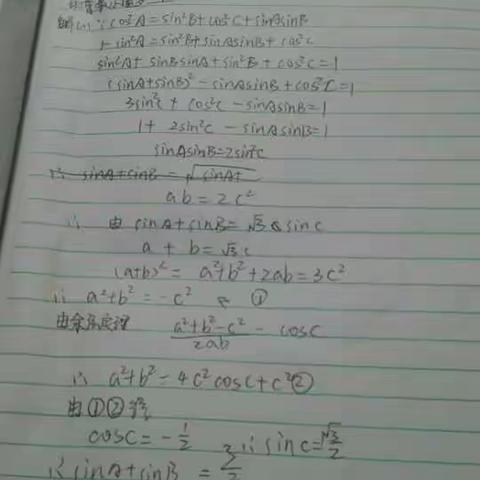 解(1)∵cos²A=sin²B+cos²C+sinAsinB
1-sin²A=sin²B+sinAsinB+cos²C
sin²A+sinBsinA+sin²B+cos²C=1
(sinA+sinB)²-sinAsinB+cos²C=1
3sin²C+cos²C-sinAsinB=1
1+2sin²C-sinAsinB=1
sinAsinB=2sin²C
∴ sinA+sinB=√sinA+
ab=2c²
∴ 由 sinA+sinB=√3 sinC
a+b=√3c
(a+b)²=a²+b²+2ab=3c²
∴ a²+b²=-c² ①
由余弦定理 a²+b²-c²/2ab=cosC
∴ a²+b²=4c²cosC+c²②
由①②得
cosC=-1/2 ∴sinC=√3/2
又sinA+sinB=